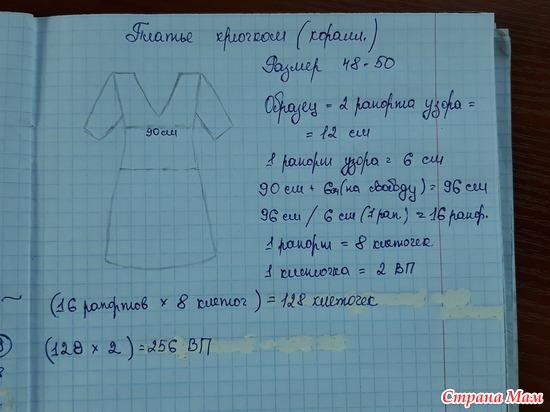 Платье крючком (коралл.)
Размер 48-50
Образец = 2 рапорта узора =
= 12 см
90 см
1 рапорт узора = 6 см
90 см + 6см (на свободу) = 96 см
96 см / 6 см (1 рап.) = 16 рапф.
1 рапорт = 8 клеточек
1 клеточка = 2 ВП
(16 рапортов × 8 клеток) = 128 клеточек
(128 × 2) = 256 ВП
Страна Мам